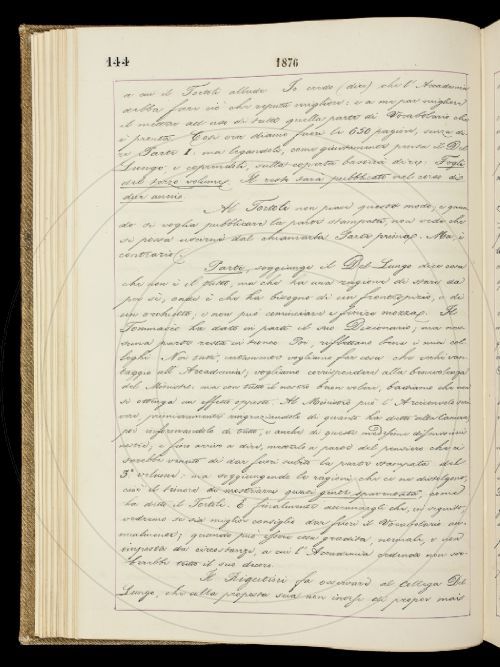 144
1876
a cui il Tortoli allude. Io credo (dice) che l'Accademia
debba fare ciò che reputa migliore: e a me par migliore
il mettere ad uso di tutti quella parte di Vocabolario che
è pronta. Così ora diamo fuori le 650 pagine, senza di-
re Parte I: ma legandole, come giustamente pensa il Del
Lungo, e coprendole, sulla coperta basterà dire: Fogli
del terzo volume. Il resto sarà pubblicato nel corso di
due anni.
Al Tortoli non pare questo modo, e quan-
do si voglia pubblicare la parte stampata, non vede che
si possa uscirne dal chiamarla Parte prima. Ma, è
contrario.
Parte, soggiunge il Del Lungo dice cosa
che non è il tutto, ma che ha una ragione di stare da
per sé, onde è che ha bisogno di un frontespizio, o di
un occhietto, e non può cominciare e finire mozza. Il
Tommasèo ha dato in parti il suo Dizionario; ma nes-
suna parte resta in tronco. Poi, riflettano bene i miei col-
leghi. Noi tutti certamente vogliamo far cosa che rechi van-
taggio all'Accademia, vogliamo corrispondere alla benevolenza
del Ministro: ma con tutto il nostro buon volere, badiamo che non
si ottenga un effetto opposto. Al Ministro può l'Arciconsolo scri-
vere, primieramente ringraziandolo di quanto ha detto alla Camera,
poi informandolo di tutto, e anche di queste medesime discussioni
nostre; e fino arrivo a dire, metterlo a parte del pensiero che ci
sarebbe venuto di dar fuori subito la parte stampata del
3.° volume: ma soggiungendo le ragioni che ce ne distolgono,
cioè il timore di mostrare quasi gente spaventata, come
ha detto il Tortoli. E finalmente accennargli che, in seguito,
vedremo se sia miglior consiglio dar fuori il Vocabolario an-
nualmente; quando può essere cosa gradita, normale, e non
imposta da circostanze, a cui l'Accademia cedendo non ser-
berebbe tutto il suo decoro.
Il Rigutini fa osservare al Collega Del
Lungo, che alla proposta sua non intese di proporre mais